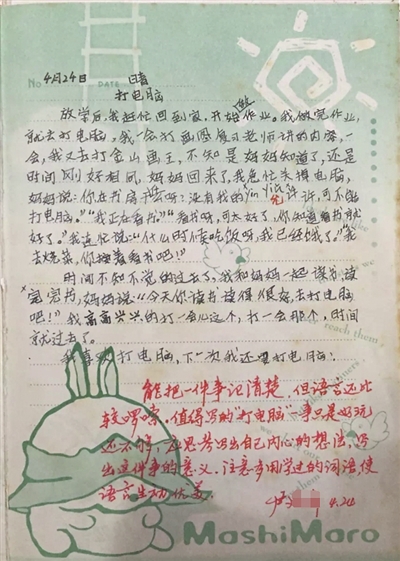 No 4月24日 DATE 晴
打电脑
放学后,我赶忙回到家,开始做作业。我做完作业,
就去打电脑,我一会打画图复习老师讲的内容,一
会,我又去打金山画王,不知是妈妈知道了,还是
时间刚好相同,妈妈回来了,我急忙关掉电脑,
妈妈说:“你在书房干什么呀?没有我的yǔn yiǔ允许,可不能
打电脑。”“我正在看书。”“看书呀,可太好了,你知道看书就
好了。”我连忙说:“什么时候吃饭呀,我已经饿了。”“我
去烧菜,你接着看书吧!”
时间不知不觉的过去了,我和妈妈一起读书
,妈妈说:“今天你读书读得很好,去打电脑
吧!”我高高兴兴的打一会儿这个,打一会那个,时间
就过去了。
我喜欢打电脑,下一次我还要打电脑!
能把一件事记清楚,但语言还比
较啰嗦,值得写的“打电脑”事只是好玩
还不够,还思考写出自己内心的想法,写
出这件事的意义。注意多用学过的词语,使
语言生动优美。
4.24
MashiMaro